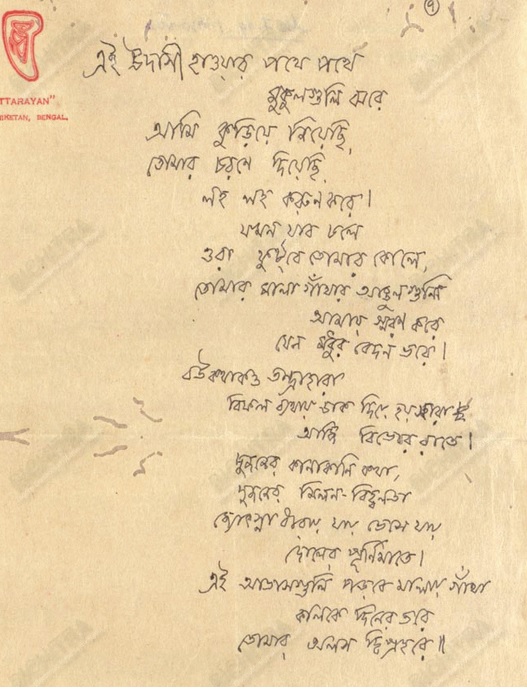 ৭
"UTTARAYAN"
SANTINIKETAN, BENGAL.
এই উদাসী হাওয়ার পথে পথে
মুকুলগুলি ঝরে
আমি কুড়িয়ে নিয়েছি,
তোমার চরণে দিয়েছি
লহ লহ করুণ করে।
যখন যাব চলে
ওরা ফুটবে তোমার কোলে,
তোমার মালা গাঁথার আঙুলগুলি
আমায় স্মরণ করে
যেন মধুর বেদন ভরে।
বউকথাকও তন্দ্রাহারা
বিফল ব্যথায় ডাক দিয়ে হয় সারা
আজি বিভোর রাতে।
দুজনের কানাকানি কথা,
দুজনের মিলন-বিহ্বলতা
জ্যোৎস্নাধারায় যায় ভেসে যায়
দোলের পূর্ণিমাতে।
এই আভাসগুলি পড়বে মালায় গাঁথা
কালকে দিনের তরে
তোমার অলস দ্বিপ্রহরে॥